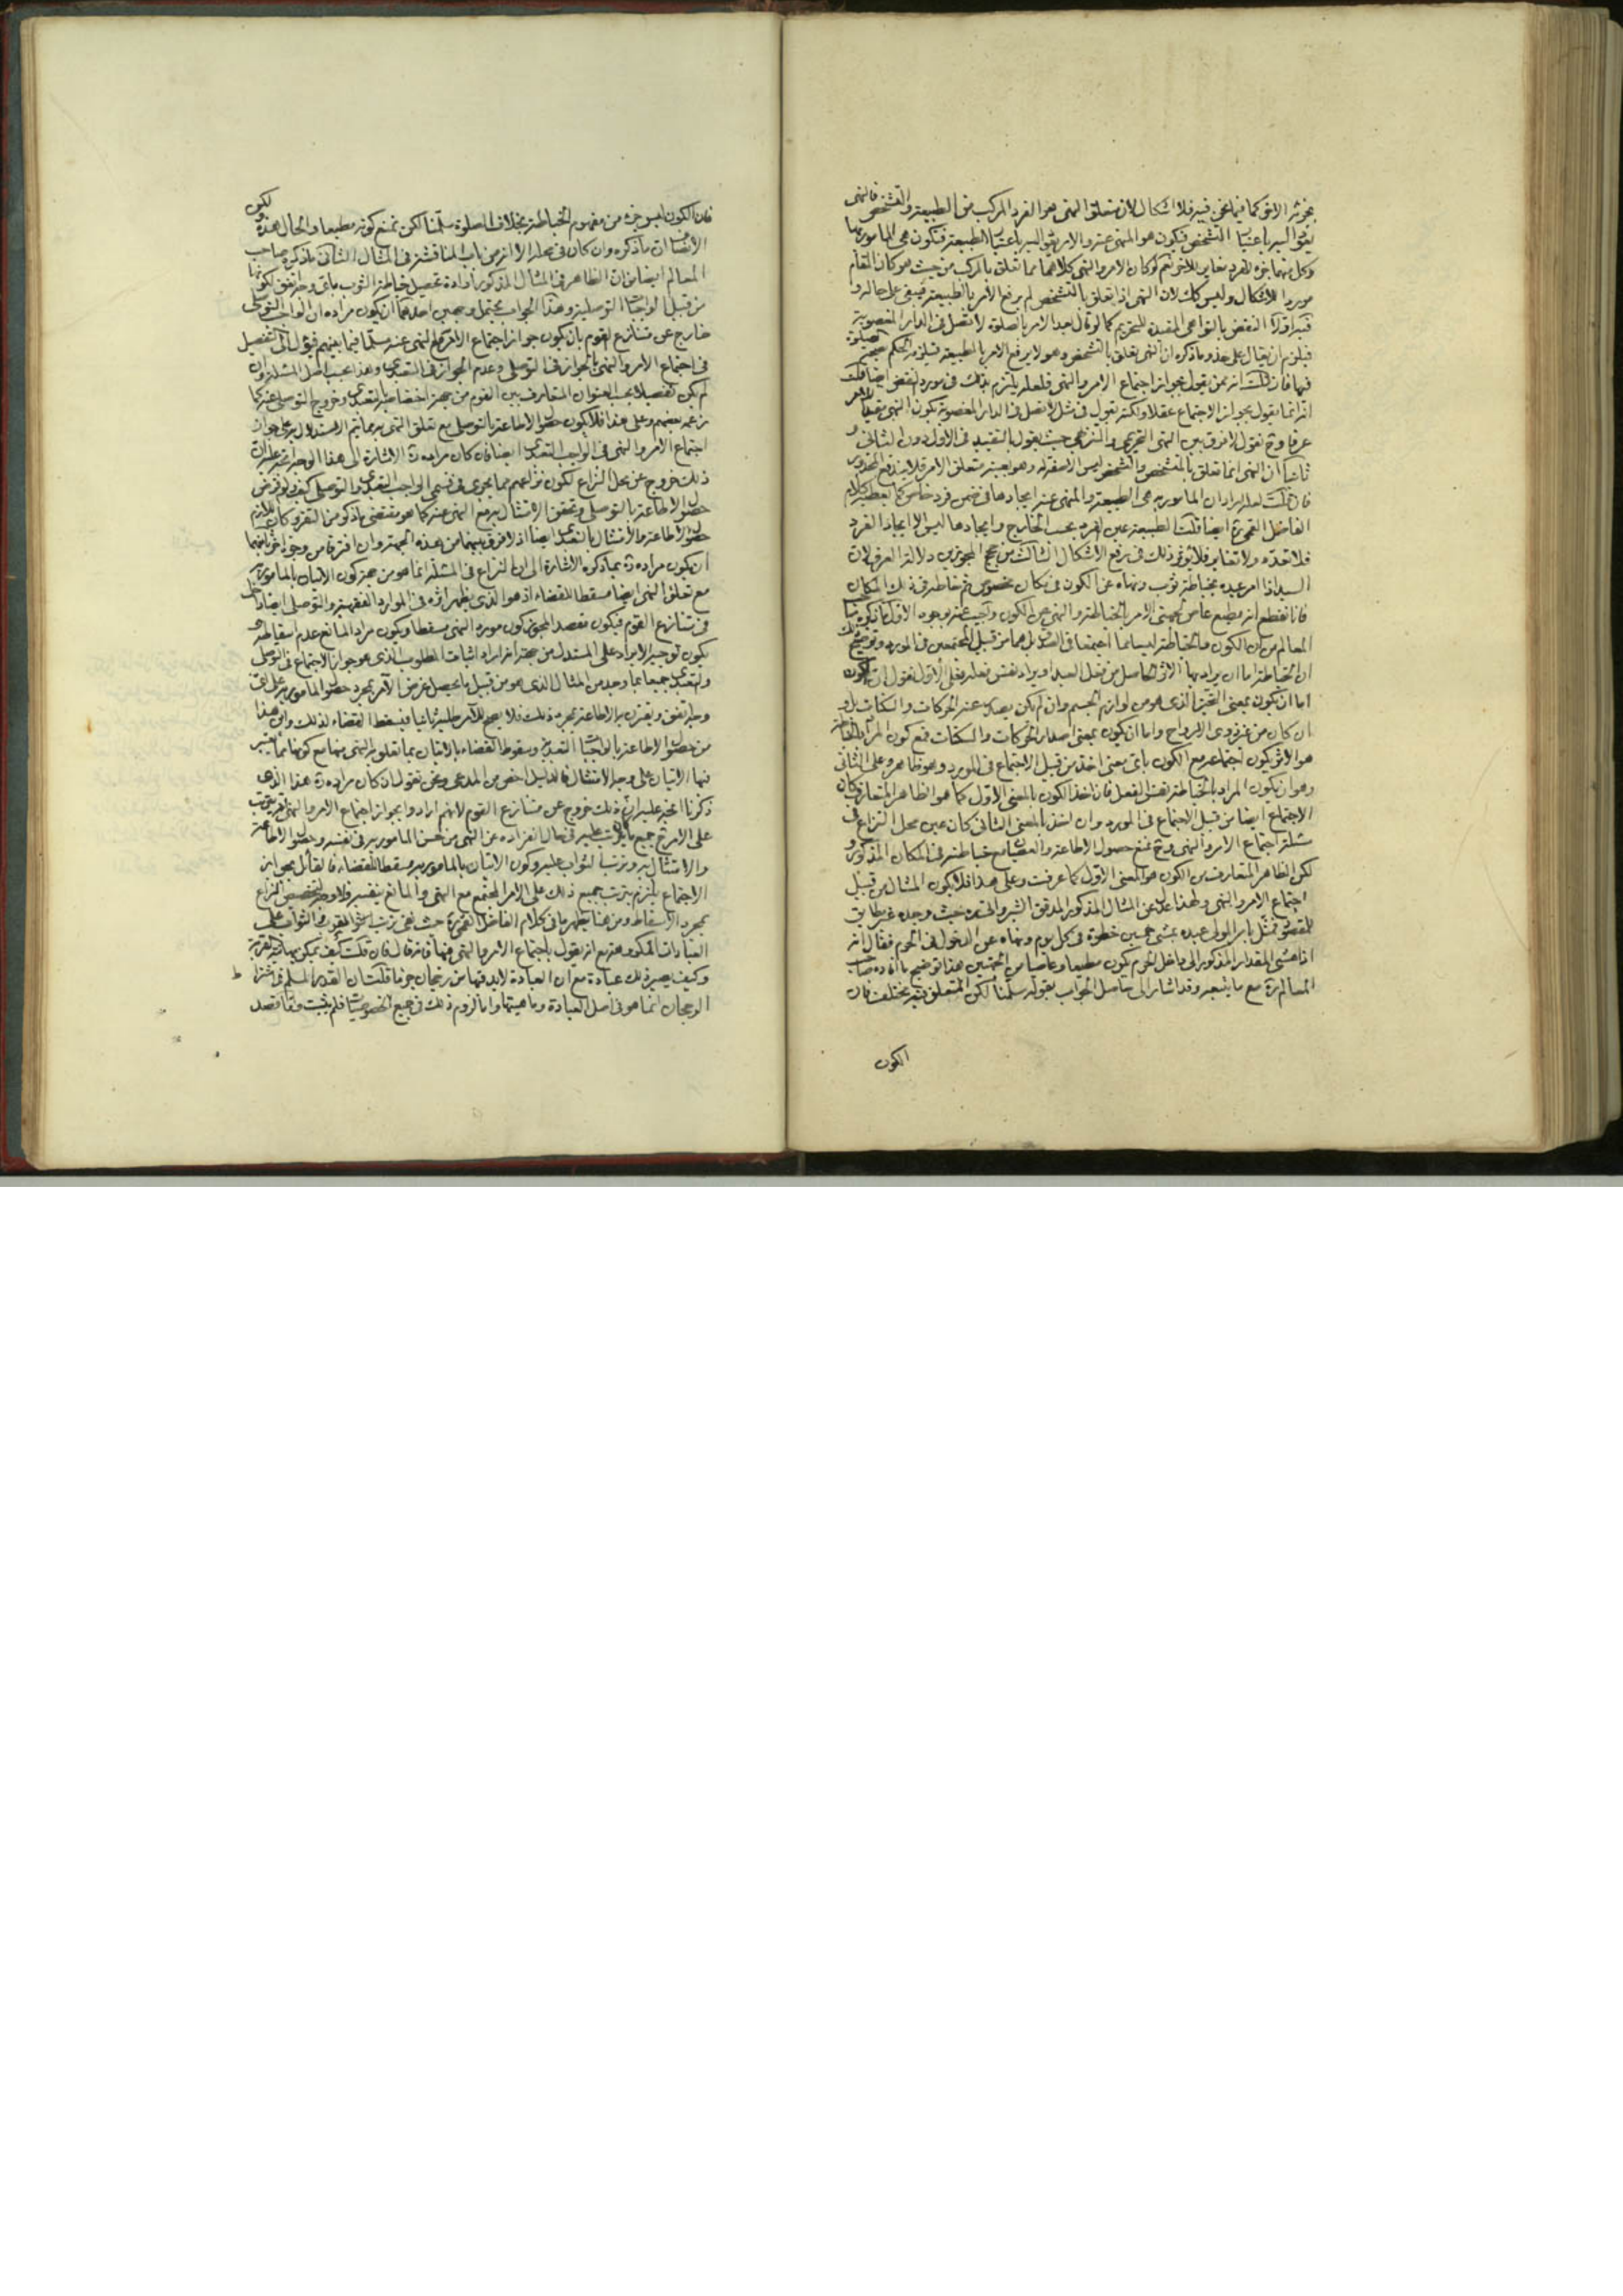 بجزئه الآخر كما فيما نحن فيه فلا اشكال لان متعلق النهى هو الفرد المركب من الطبيعة والتشخص فالنهى
باعتبار التشخص فيكون هو المنهى عنه والامر باعتبار الطبيعة فتكون هى المامور بها
وكل منهما جزء للفرد مغاير للآخر نعم لو كان الامر والنهى كلاهما مما تعلق بالمركب من حيث هو كان المقام
موردا للاشكال وليس كك لان النهى اذا تعلق بالتشخص لم يرفع الامر بالطبيعة فيبقى على حاله و
فيه اولا النقض بالنواهى المفيدة للتحريم كما لو قال بعد الامر بالصلوة لا تصل فى الدار المغصوبة
فيلزم ان يقال على حذو ما ذكره ان النهى تعلق بالتشخص وهو لا يرفع الامر بالطبيعة فيلزم الحكم بصحة
فيها فان قلت انه ممن يقول بجواز اجتماع الامر والنهى فلعله يلتزم بذلك فى مورد النقض ايضا قلت
انه انما يقول بجواز الاجتماع عقلا ولكنه يقول فى مثل لا تصل فى الدار المغصوبة بكون النهى مقيدا للامر
عرفا وح نقول لا فرق بين النهى التحريمى والتنزيهى حيث يقول بالتقييد فى الاول دون الثانى و
ثانيا ان النهى انما تعلق بالمتشخص والتشخص ليس الا صفة له وهو بعينه متعلق الامر فلا يندفع المحذور
فان قلت لعله اراد ان المامور به هى الطبيعة والمنهى عنه ايجادها فى ضمن فرد خاص كما يعطيه كلام
الفاضل القمى ره ايضا قلت الطبيعة عين الفرد بحسب الخارج وايجادها ليس الا ايجاد الفرد
فلا تعدد ولا تغاير فلا يؤثر ذلك فى رفع الاشكال الثالث من حجج المجوزين دلالة العرف لان
السيد اذا امر عبده بخياطة ثوب ونهاه عن الكون فى مكان مخصوص ثم خاطه فى ذلك المكان
فانا نقطع انه مطيع عاص لجهتى الامر بالخياطة والنهى عن الكون واجيب عنه بوجوه الاول ما ذكره صاحب
المعالم من ان الكون والخياطة ليسا مما اجتمعا فى الصدق بل هما من قبيل المجتمعين فى المورد وتوضيح ذلك
ان الخياطة اما ان يراد بها الاثر الحاصل من فعل العبد او يراد نفس فعله فعلى الاول نقول ان الكون
اما ان يكون بمعنى التحيز الذى هو من لوازم الجسم وان لم يكن يصدر عنه الحركات والسكنات بل و
ان كان من غير ذوى الارواح واما ان يكون بمعنى اصدار الحركات والسكنات فمع كون المراد بالخياطة
هو الاثر يكون اجتماعه مع الكون باى معنى اخذ من قبيل الاجتماع فى المورد وهو ظاهر وعلى الثانى
وهو ان يكون المراد بالخياطة نفس الفعل فان اخذ الكون بالمعنى الاول كما هو الظاهر المتعارف كان
الاجتماع ايضا من قبيل الاجتماع فى المورد وان اخذ بالمعنى الثانى كان عين محل النزاع فى
مسئلة اجتماع الامر والنهى وح نمنع حصول الاطاعة والعصيان مع خياطته فى المكان المذكور و
لكن الظاهر المتعارف من الكون هو المعنى الاول كما عرفت وعلى هذا فلا يكون المثال من قبيل
اجتماع الامر والنهى ولهذا عدل عن المثال المذكور المدقق الشيروانى حيث وجده غير مطابق
للمقصود فمثل بامر المولى عبده بمشى خمسين خطوة فى كل يوم ونهاه عن الدخول فى الحرم فقال انه
اذا مشى المقدار المذكور الى داخل الحرم يكون مطيعا وعاصيا من الجهتين هذا توضيح ما افاده صاحب
المعالم ره مع ما يتبعه وقد اشار الى حاصل الجواب بقوله سلمنا لكن المتعلق فيه مختلف فان
الكون
فان الكون ليس جزء من مفهوم الخياطة بخلاف الصلوة سلمنا لكن نمنع كونه مطيعا والحال هذه لكون
الانصاف ان ما ذكره وان كان فى محله الا انه من باب المناقشة فى المثال الثانى ما ذكره صاحب
المعالم ايضا من ان الظاهر فى المثال المذكور ارادة تحصيل خياطة الثوب باى وجه اتفق لكونها
من قبيل الواجبات التوصلية وهذا الجواب يحتمل وجهين احدهما ان يكون مراده ان الواجب التوصلى
خارج عن متنازع القوم بان يكون جواز اجتماع الامر مع النهى عنه مسلما فيما بينهم فيؤل الى التفصيل
فى اجتماع الامر والنهى بالجواز فى التوصلى وعدم الجواز فى التعبدى وهذا بحسب اصل المسئلة وان
لم يكن تفصيلا بحسب العنوان المتعارف بين القوم من جهة اختصاصه بالتعبدى وخروج التوصلى عنه كما
زعمه بعضهم وعلى هذا فلا يكون حصول الاطاعة بالتوصلى مع تعلق النهى به مما يتم الاستدلال به على جواز
اجتماع الامر والنهى فى الواجب التعبدى ايضا فان كان مراده ره الاشارة الى هذا الوجه اتجه عليه ان
ذلك خروج عن محل النزاع لكون نزاعهم مما يجرى فى قسمى الواجب التعبدى والتوصلى كيف ولو فرض
حصول الاطاعة بالتوصلى وتحقق الامتثال به مع النهى عنه كما هو مقتضى ما ذكره من التقرير كان اللازم
حصول الاطاعة والامتثال بالتعبدى ايضا اذ لا فرق بينهما من هذه الجهة وان افترقا من وجوه اخر ثانيهما
ان يكون مراده ره بما ذكره الاشارة الى ان النزاع فى المسئلة انما هو من جهة كون الاتيان بالمامور به
مع تعلق النهى ايضا مسقطا للقضاء اذ هو الذى يظهر اثره فى الموارد الفقهية والتوصلى ايضا داخل
فى متنازع القوم فيكون مقصد المجوز كون مورد النهى مسقطا ويكون مراد المانع عدم اسقاطه و
يكون توجيه الايراد على المستدل من جهة انه اراد اثبات المطلوب الذى هو جواز الاجتماع فى التوصلى
والتعبدى جميعا بما وجد من المثال الذى هو من قبيل ما يحصل غرض الآمر بمجرد حصول المامور به على اى
وجه اتفق ويقترن به الاطاعة بمجرد ذلك فلا يصح للآمر طلبه ثانيا فيسقط القضاء لذلك واين هذا
من حصول الاطاعة بالواجبات التعبدية وسقوط القضاء بالاتيان بما تعلق به النهى منها مع كونها مما يعتبر
فيها الاتيان على وجه الامتثال فالدليل اخص من المدعى ونحن نقول ان كان مراده ره هذا الذى
ذكرنا اتجه عليه ان ذلك خروج عن متنازع القوم لانهم ارادوا بجواز اجتماع الامر والنهى ترتب
على الامر ح جميع ما يترتب عليه فى حال انفراده عن النهى من حسن المامور به فى نفسه وحصول الاطاعة
والامتثال به وترتب الثواب عليه وكون الاتيان بالمامور به مسقطا للقضاء فالقائل بجواز
الاجتماع يلتزم بترتب جميع ذلك على الامر المجتمع مع النهى والمانع ينفيه فلا وجه لتخصيص النزاع
بمجرد الاسقاط ومن هنا يظهر ما فى كلام الفاضل القمى ره حيث نفى ترتب القرب والثواب على
العبادات المكروهة مع انه يقول باجتماع الامر والنهى فيها فانه قال فان قلت كيف يمكن فيها القربة
وكيف يصير ذلك عبادة مع ان العبادة لا بد فيها من رجحان جزما قلت ان القدر المسلم فى اشتراط
الرجحان انما هو فى اصل العبادة وماهيتها واما لزوم ذلك فى جميع الخصوصيات فلم يثبت وقصد